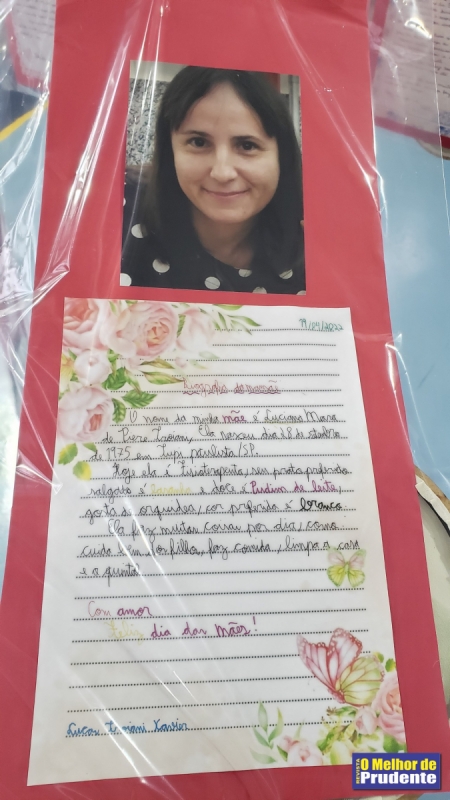 19/04/2022
Biografia da mamãe
O nome da minha mãe é Luciana Mara
de Pieze Troiani, Ela nasceu dia 28 de
de 1975 em Tupi paulista/SP.
Hoje ela é fisioterapeuta, seu prato preferido
salgado é e doce é Pudim de leite,
gosta de orquídeas, cor preferida é branco
Ela faz muitas coisas por dia, como
cuida em dos filhos, faz comida, limpa a casa
e o quintal.
Com amor
Feliz dia das Mães!
Lucas Troiani Xavier
REVISTA
O Melhor de
Prudente